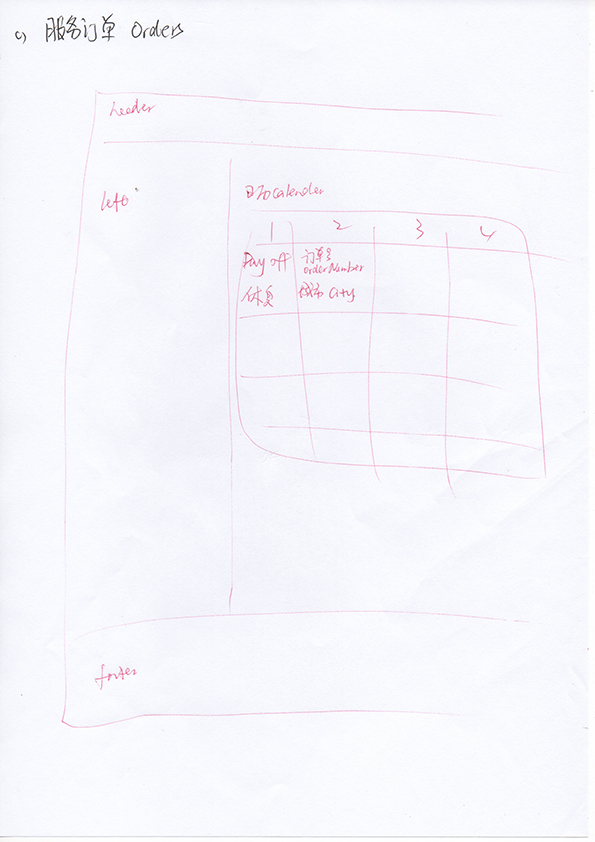 c) 服务订单 Orders
header
left
日历 Calender
1 2 3 4
Day off 订单号
orderNumber
休息 城市 City
footer